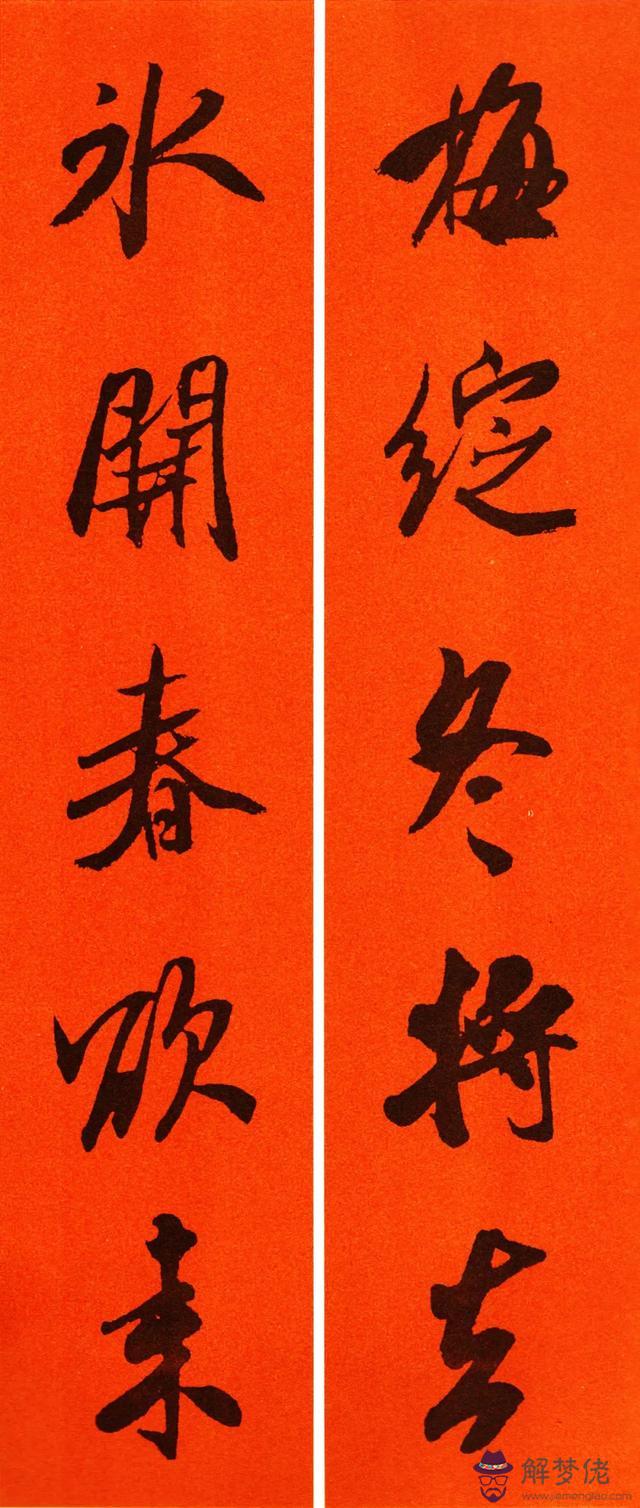 梅綻冬將去
氷開春欲来
解梦佬
www.jiemenglao.com